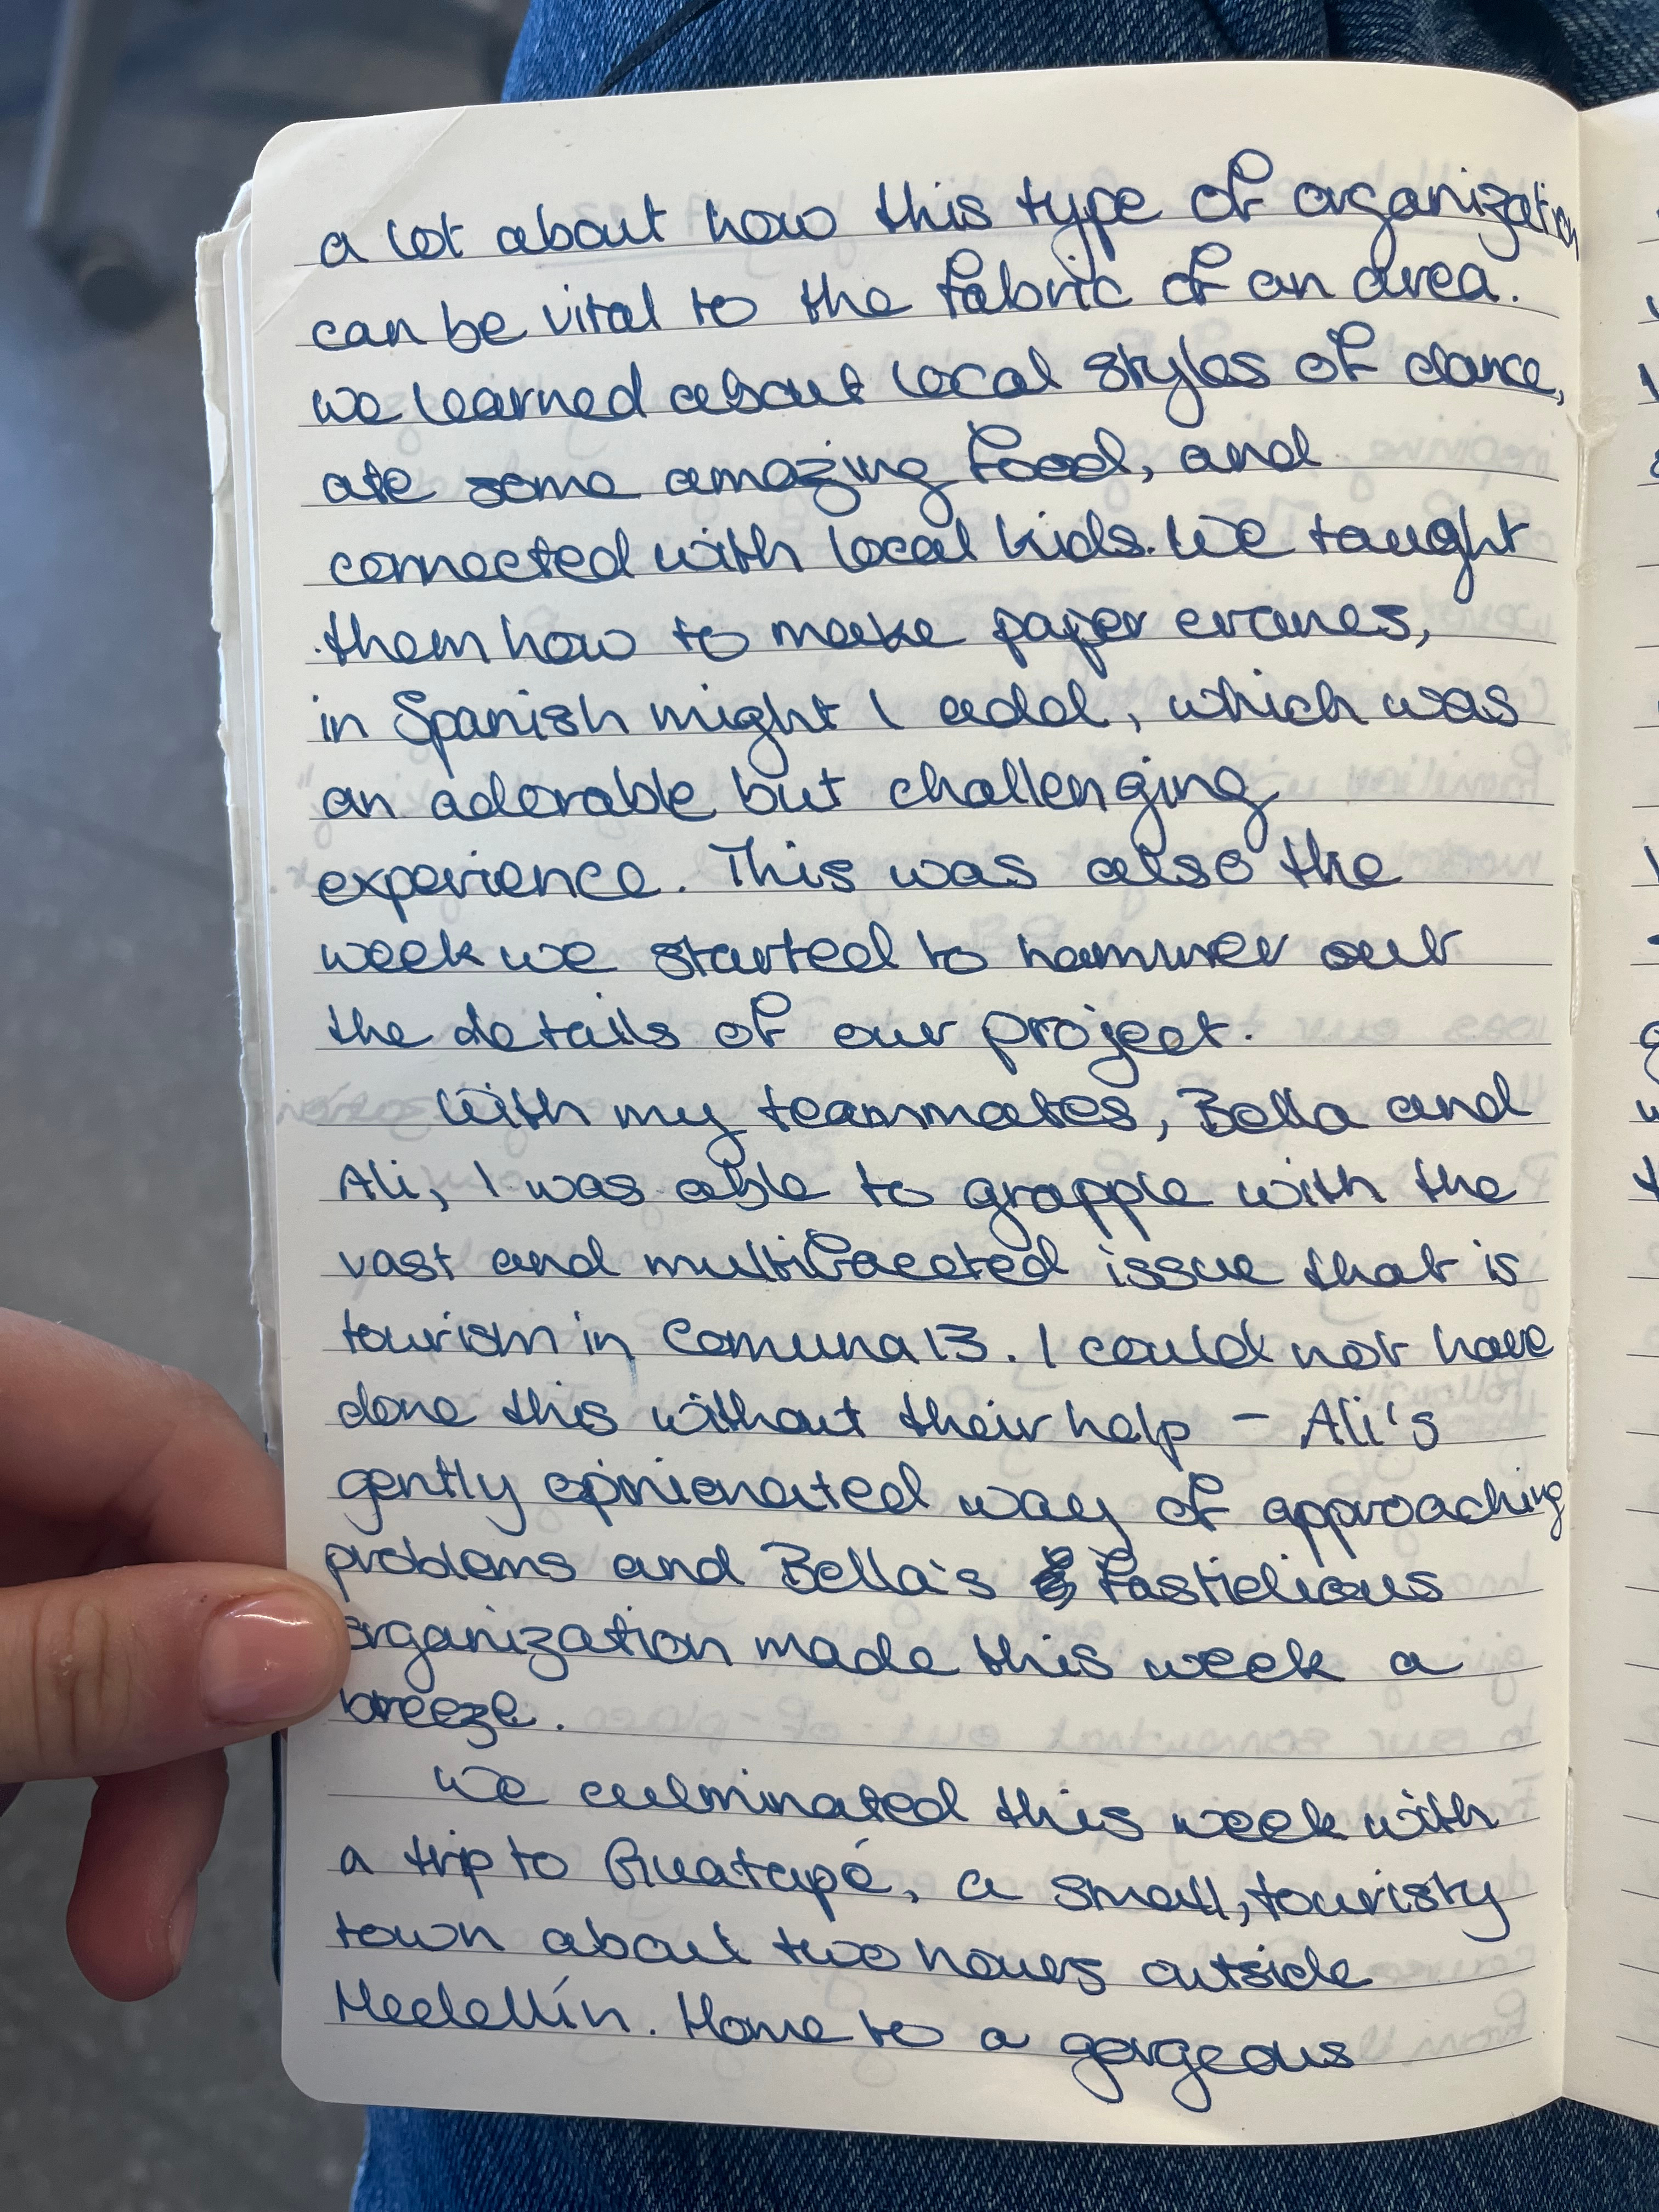 a lot about how this type of organization
can be vital to the fabric of an area.
we learned about local styles of dance,
ate some amazing food, and
connected with local kids. We taught
them how to make paper cranes,
in Spanish might I add, which was
an adorable but challenging
experience. This was also the
week we started to hammer out
the details of our project.
With my teammates, Bella and
Ali, I was able to grapple with the
vast and multifaceted issue that is
tourism in Comuna 13. I could not have
done this without their help – Ali's
gently opinionated way of approaching
problems and Bella's fastidious
organization made this week a
breeze.
We culminated this week with
a trip to Guatapé, a small, touristy
town about two hours outside
Medellín. Home to a gorgeous